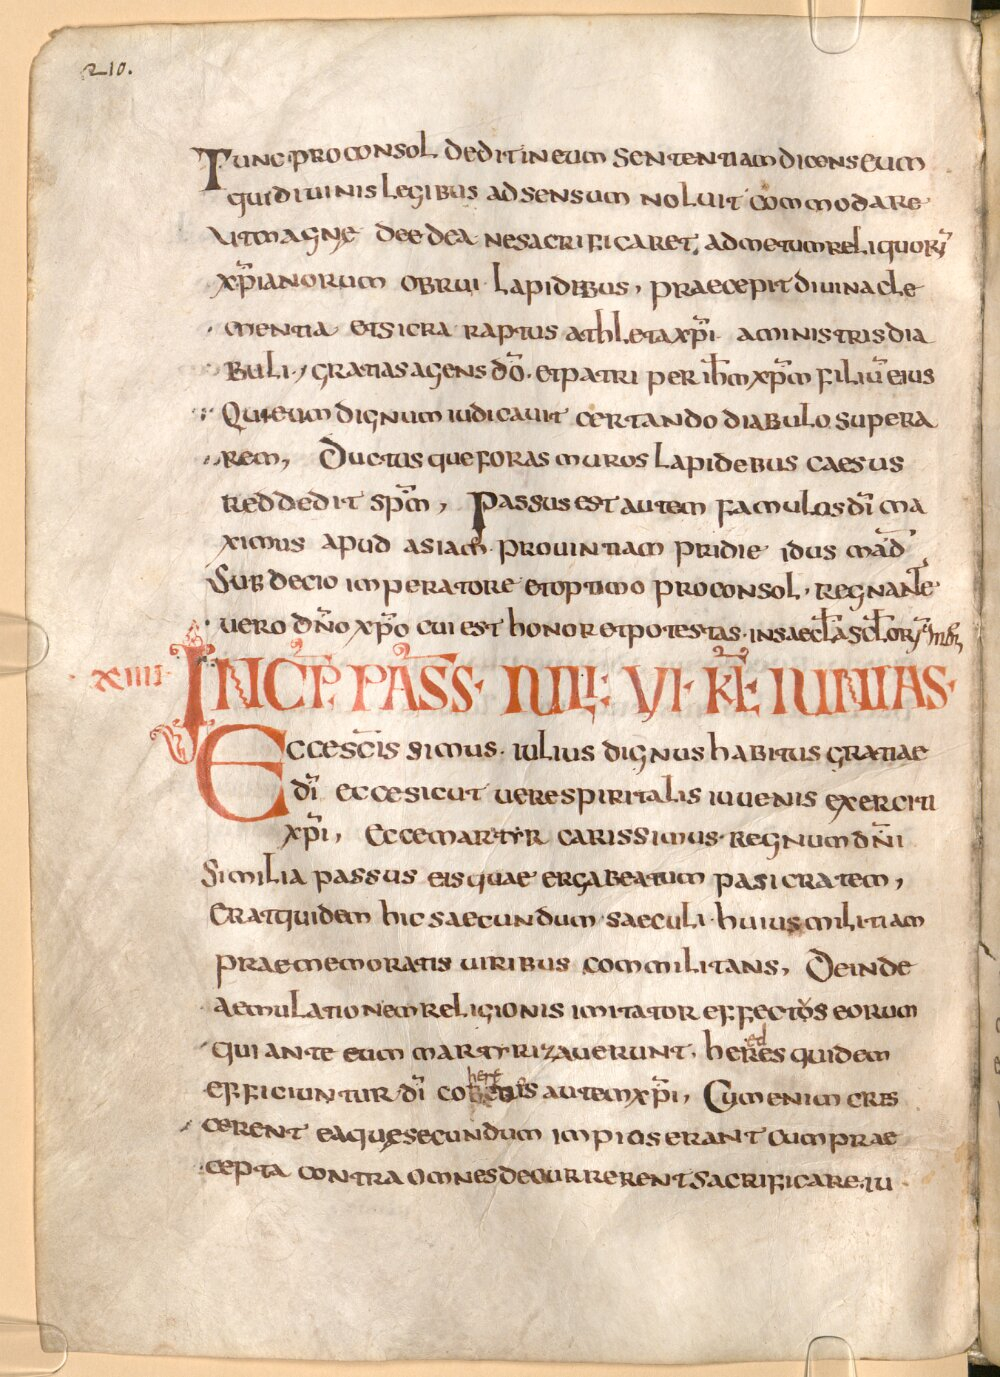 210.
Tunc proconsol dedit in eum sententiam dicens eum
qui diuinis legibus adsensum noluit commodare
Vt magnę deę dea ne sacrificaret, ad metum reliquorũ
xp̃ianorum obrui lapidibus, praecepit diuina cle
mentia et sic raptus athleta xp̃i a ministris dia
buli, gratias agens dõ et patri per ih̃m xp̃m filiũ eius
Qui eum dignum iudicauit certando diabulo supera
rem, Ductusque foras muros lapidebus caesus
reddedit sp̃m, Passus est autem famulus dĩ ma
ximus apud asiam prouintiam pridie idus mad̃
Sub decio imperatore et optimo proconsol, regnante
uero dño xp̃o cui est honor et potestas in saecl̃a scl̃orũ
xiiii INCP̃. PAS̃S. IULI. VI. KL̃ IUNIAS.
Ecce sc̃issimus iulius dignus habitus gratiae
dĩ ecce sicut uere spiritalis iuuenis exerciti
xp̃i, Ecce martyr carissimus regnum dñi
Similia passus eis quae erga beatum pasicratem,
erat quidem hic saecundum saeculi huius militiam
praememoratis uiribus commilitans, Deinde
aemulationem religionis imitator effectos eorum
qui ante eum martyrizauerunt. heres quidem
ed
efficiuntur dĩ co autem xp̃i, Cum enim cres
here
cerent eaque secundum impios erant cum prae
cepta contra omnes decurrerent sacrificare iu